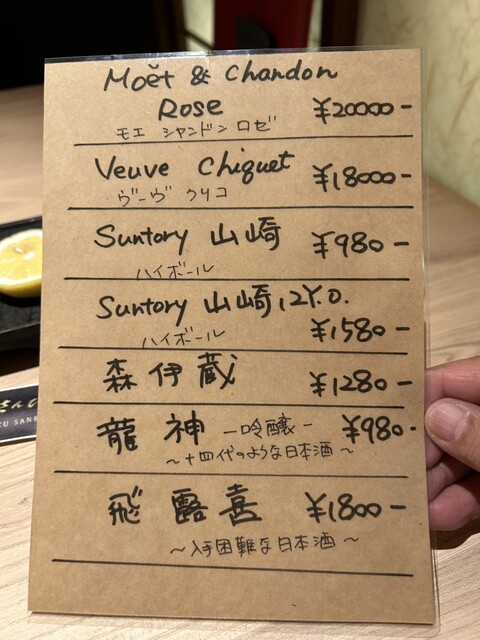 Moët & Chandon
Rose ¥20000-
モエ シャンドン ロゼ
Veuve Chiquet ¥18000-
ヴーヴ クリコ
Suntory 山崎 ¥980-
ハイボール
Suntory 山崎 12Y.O.
ハイボール ¥1580-
森伊蔵 ¥1280-
龍神 -吟醸- ¥980-
〜十四代のような日本酒〜
飛露喜 ¥1800-
〜入手困難な日本酒〜